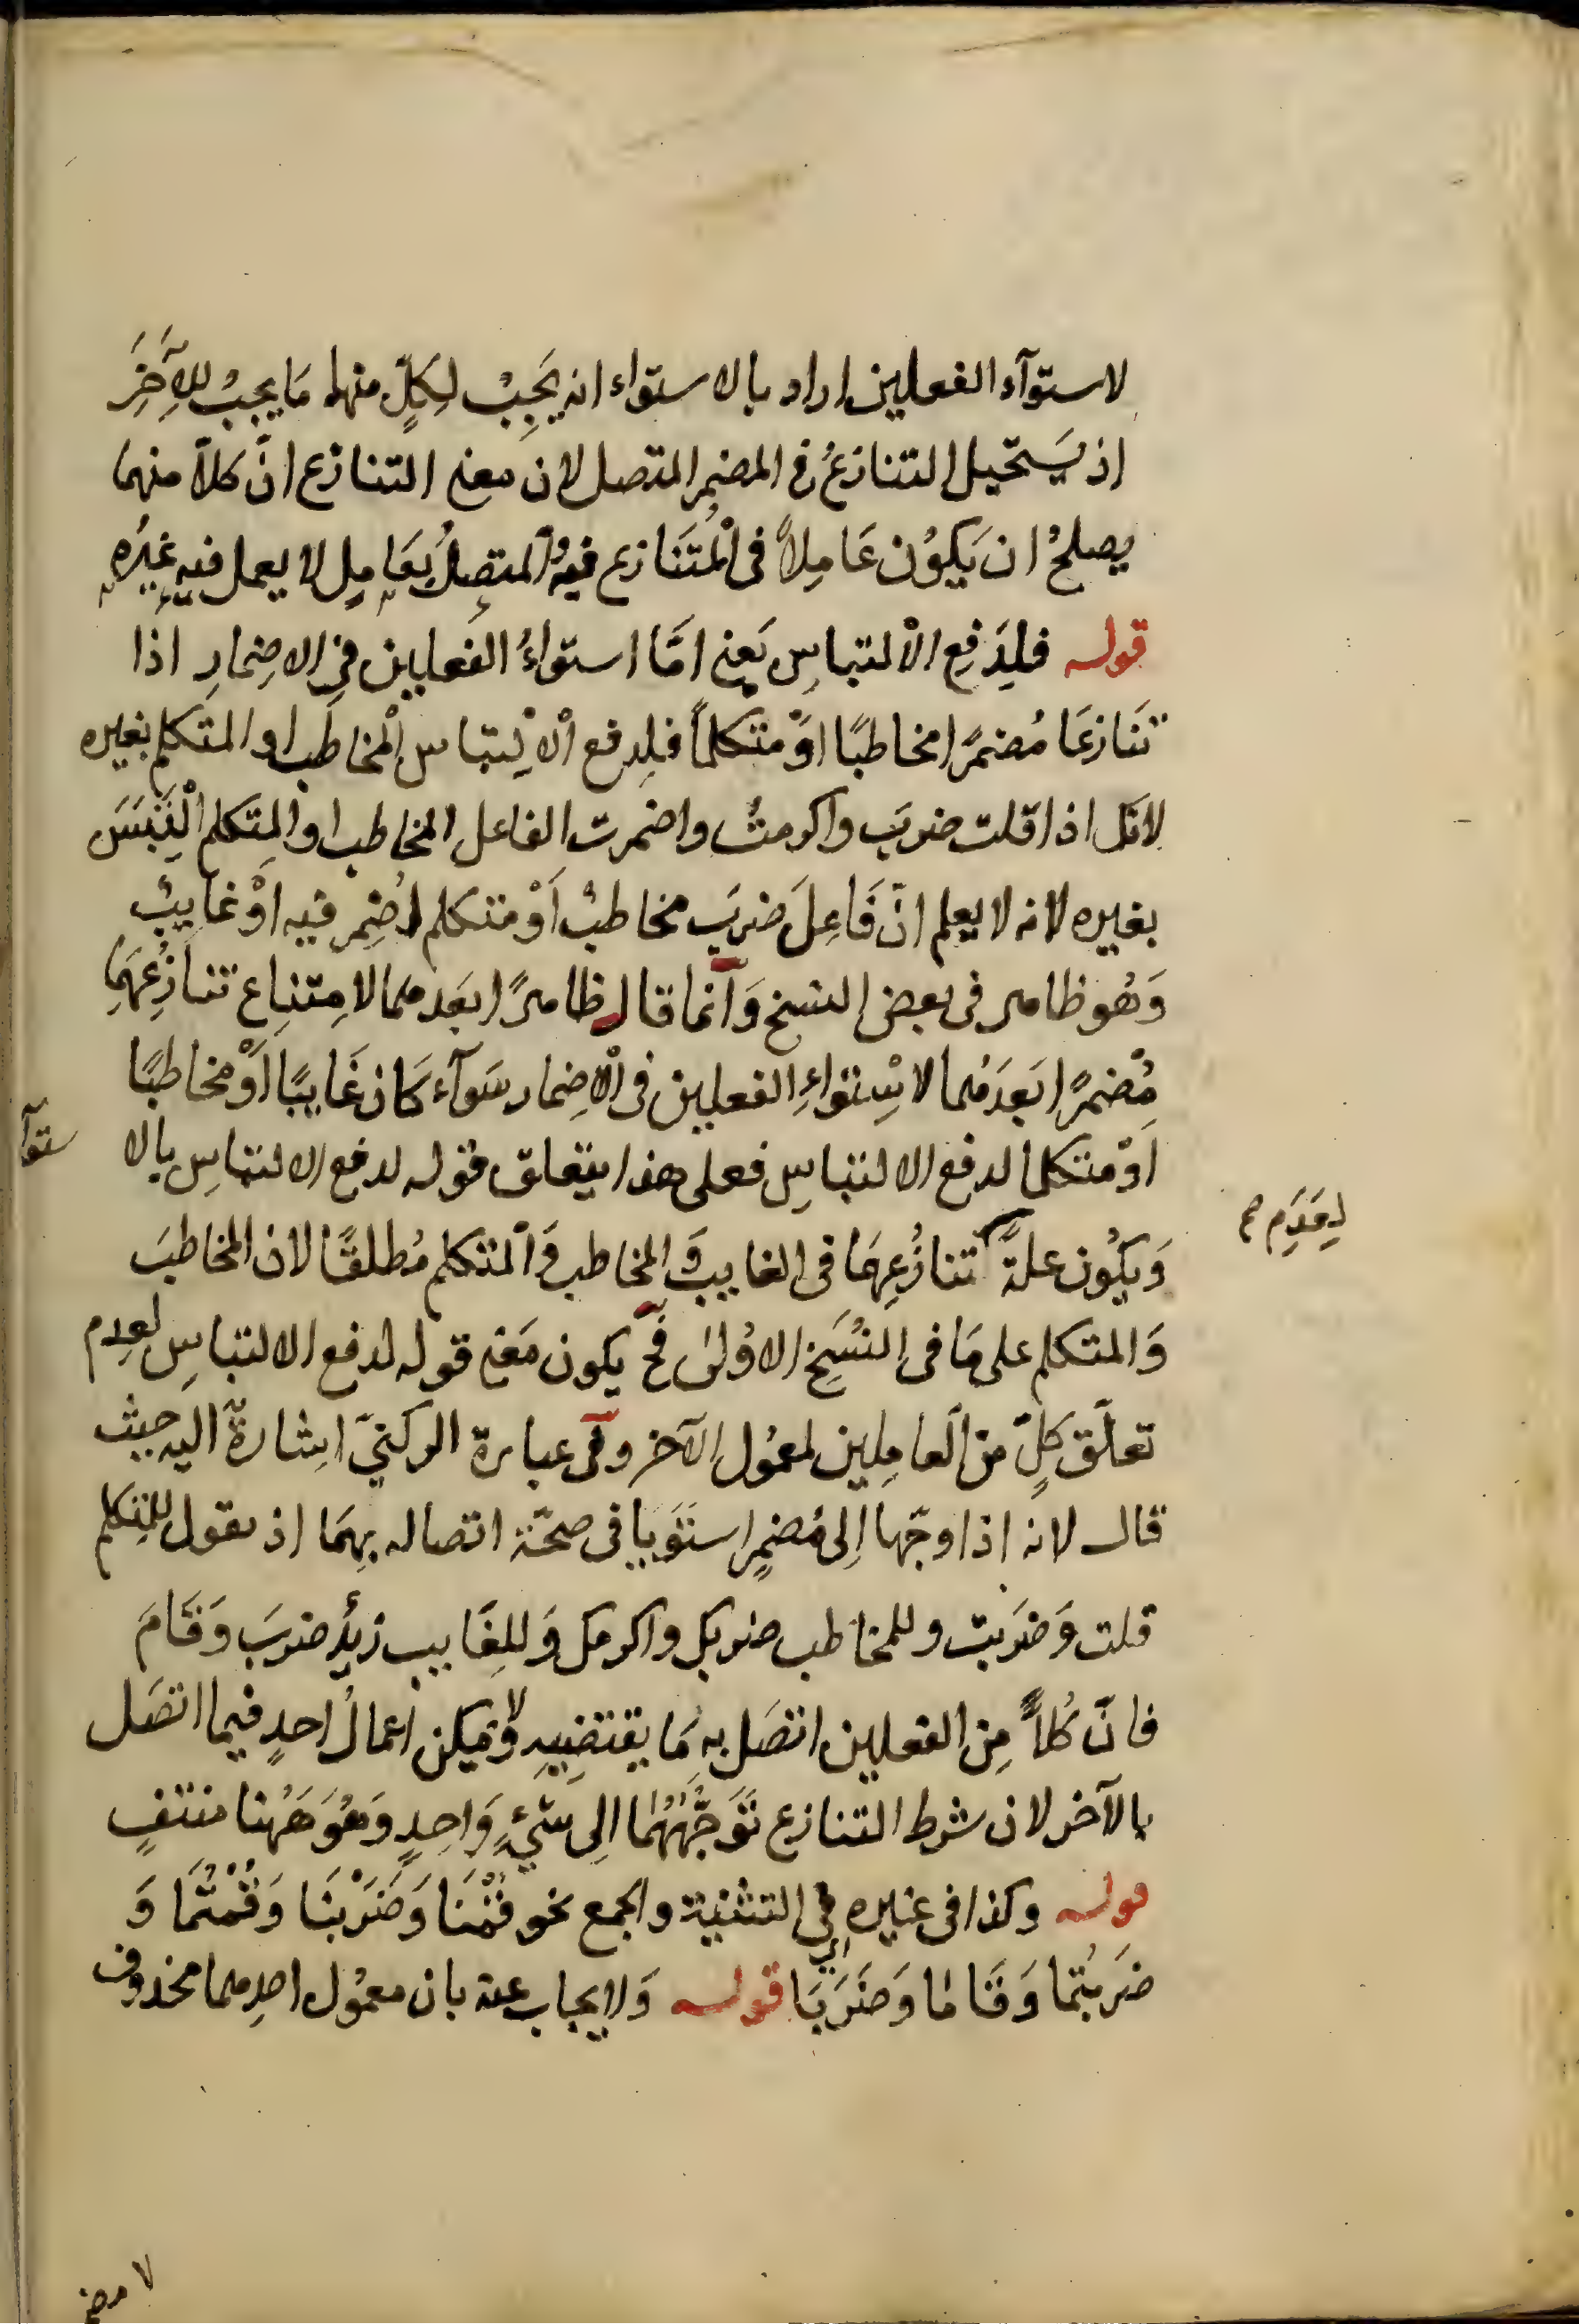 لاستوآء الفعلين اراد بالاستواء انه يَجِبُ لِكَلٍّ منهما مَا يجبُ للآخَرِ
اذ يَستَحيل التنازعُ في المضمر المتصل لان معنى التنازع انّ كلاًّ منهما
يصلحُ ان يَكوُن عَامِلاً فى اْلمُتَنازع فيهِ وُالمتصِلُ بِعَامِلٍ لا يعمل فيهِ غيرُه
قوله فلِدَفعِ الاْلتباسِ يَعنِى امَّا استواءُ الفَعلين فى الاضِمارِ اذا
تَنَازعَا مُضمَرًا مخاطبًا اوْ متكلمًا فلِدفع اْلاِلْتباس اْلمخاطَب او المتكلم بغيره
لانك اذا قلت ضربَ واكرمتُ واضمرت الفاعل المخاطب او المتكلم الْتَبَسَ
بغيره لانه لا يعلم انّ فَاعِلَ ضربَ مخاطبٌ اَوْ متكلم اُضْمِر فيه اوْ غايبٌ
وَهُو ظاهر فى بعض النسخ وَانّما قال ظاهرًا بعَدهما لامِتنِاع تنازُعِهمَا
مُضمرًا بَعدَهُما لاسْتِواءِ الفعلين فى اْلاِضمار سَوآء كَانَ غَايبًا اَوْ مخاطبًا
اوْ متكلما لدفع الالتباسِ فعلى هذا يتعلق قوله لدفع الالتباسِ بالا ستوآ
وَيكُون علةً تنازُعِهمَا فى الغايبِ وَالمخاطبِ وَالمتكلم مُطلقًا لان المخاطبَ
لِعَدَمِ صح
وَالمتكلم على مَا فى النُسَخِ الاوُلى فحّ يكون مَعنى قوله لدفع الالتباسِ لعدِم
تعلّق كَلٍّ مَن العامِلين لمعمُول الآخر وفى عبارة الركنيّ اشارةٌ اليه حيث
قال لانه اذا وجّها اِلى مُضمرٍ استَوَيا فى صحّة اتصاله بهِمَا اذ يقول للمتكلم
قلت وَضَربت وللمخاطب ضربك واكرمك وَللغَايب زيدٌ ضربَ وَقَامَ
فانّ كُلاًّ مِن الفعلين اتصَل بهِ مَا يقتضِيهِ ولا يمكن اعمالُ احدٍ فيما اتصَل
بالآخر لان شرط التنازع تَوَجُّهُهُمَا اِلى شَيْءٍ وَاحِدٍ وَهُوَ هَهُنا منتفٍ
قوله وكذا فى غيره اى فى التثنية والجمع نحو قُمْنَا وَضَرَبْنَا وَقُمْتُمَا وَ
ضرَبتُما وَقَامَا وَضَرَبَا قوله وَلا يجاب عنه بان معمُول احدِهما محذوف